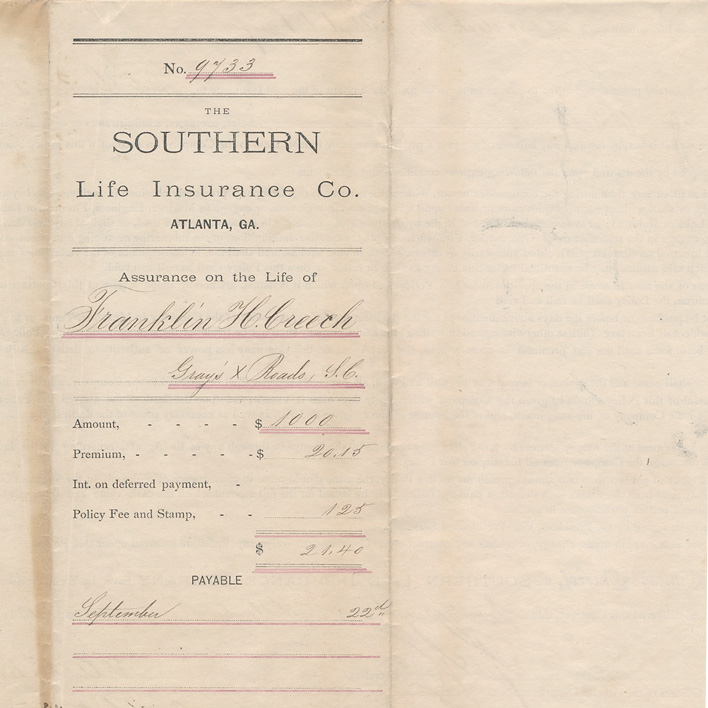 No. 9733
THE
SOUTHERN
Life Insurance Co.
ATLANTA, GA.
Assurance on the Life of
Franklin H. Creech
Gray's X Roads, S.C.
Amount, - - - - $ 1000
Premium, - - - - - $ 20.15
Int. on deferred payment, -
Policy Fee and Stamp, - - 125
$ 21.40
PAYABLE
September 22d